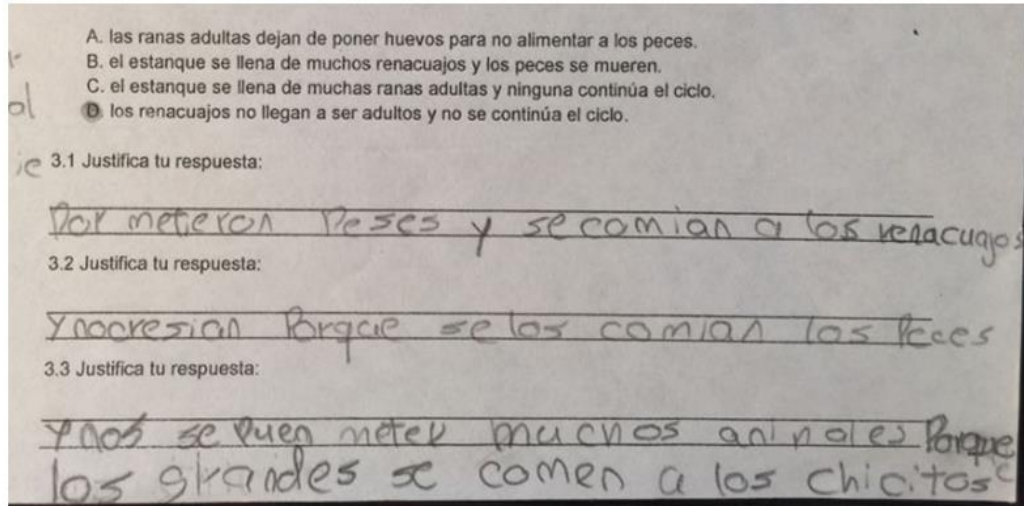 A. las ranas adultas dejan de poner huevos para no alimentar a los peces.
B. el estanque se llena de muchos renacuajos y los peces se mueren.
C. el estanque se llena de muchas ranas adultas y ninguna continúa el ciclo.
al D. los renacuajos no llegan a ser adultos y no se continúa el ciclo.
ie 3.1 Justifica tu respuesta:
Por metieron Peses y se comian a los renacuajos
3.2 Justifica tu respuesta:
Y nocresian Porque se los comian los Peces
3.3 Justifica tu respuesta:
Y nos se Puen meter muchos animales Porque
los grandes se comen a los chicitos